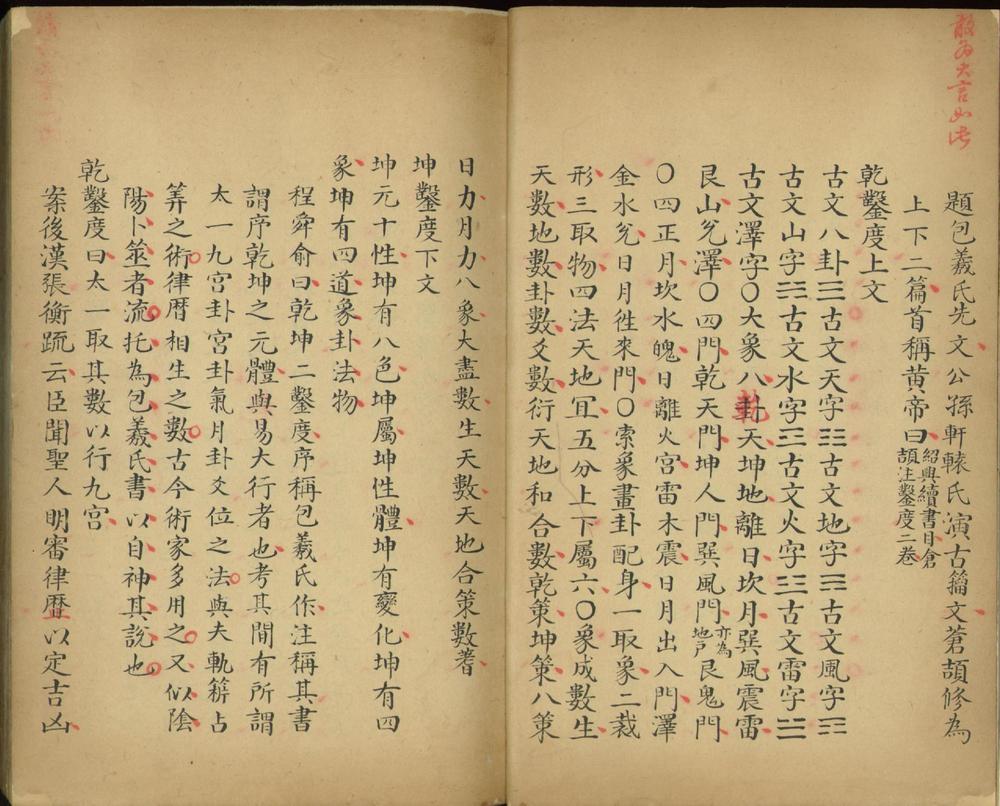 敢為大言如此
題包羲氏先文公孫軒轅氏演古籀文蒼頡修為
上下二篇首稱黃帝曰紹興續書目倉
頡注鑿度二卷
乾鑿度上文
古文八卦☰古文天字☷古文地字☴古文風字☶
古文山字☵古文水字☲古文火字☳古文雷字☱
古文澤字〇大象八卦天坤地離日坎月巽風震雷
艮山兌澤〇四門乾天門坤人門巽風門亦為
地戶艮鬼門
〇四正月坎水魄日離火宮雷木震日月出入門澤
金水兌日月徃來門〇索象畫卦配身一取象二裁
形三取物四法天地冝五分上下屬六〇象成數生
天數地數卦數爻數衍天地和合數乾策坤策八策
日力月力八象大盡數生天數天地合策數蓍
坤鑿度下文
坤元十性坤有八色坤屬坤性體坤有變化坤有四
象坤有四道象卦法物
程舜俞曰乾坤二鑿度序稱包羲氏作注稱其書
謂序乾坤之元體與易大行者也考其間有所謂
太一九宮卦宮卦氣月卦爻位之法與夫軌筭占
筭之術律曆相生之數古今術家多用之又似陰
陽卜筮者流托為包羲氏書以自神其說也
乾鑿度曰太一取其數以行九宮
案後漢張衡䟽云臣聞聖人明審律曆以定吉凶